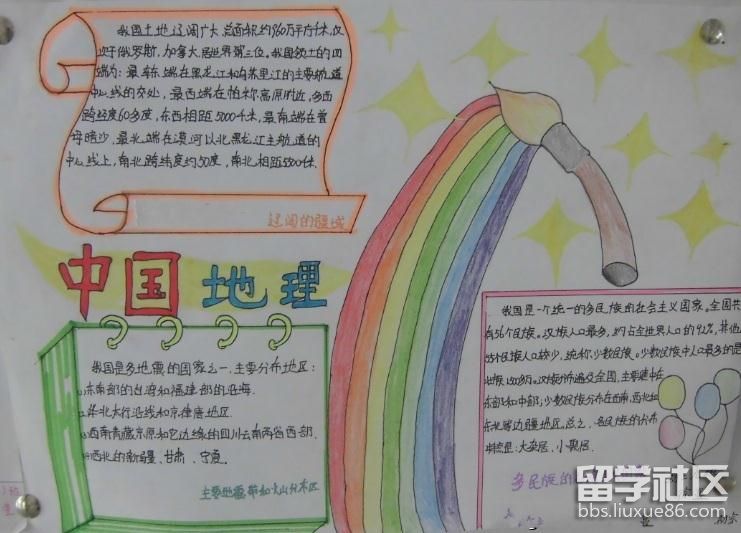 我国土地辽阔广大,总面积约960万平方千米,仅
次于俄罗斯、加拿大,居世界第三位。我国领土的四
端为:最东端在黑龙江和乌苏里江的主要航道
中心线的交处,最西端在帕米高原附近,东西
跨经度60多度,东西相距5000千米,最南端在曾
母暗沙,最北端在漠河以北黑龙江主航道的
中心线上,南北跨纬度约50度,南北相距5500千米.
辽阔的疆域
中国地理
我国是多地震的国家之一,主要分布地区:
东南部的台湾和福建部的沿海.
华北太行沿线和京津唐地区.
西南青藏高原和它边缘的四川云南两省西部.
西北的新疆、甘肃、宁夏。
主要地震带和火山分布区
我国是一个统一的多民族的社会主义国家。全国共
有56个民族。汉族人口最多,约占全世界人口的92%,其他
55个民族人口较少,统称少数民族。少数民族中人口最多的是
壮族,1500多万。汉族所遍及全国,主要集中在
东部和中部,少数民族分布在西南、西北和
东北等边疆地区。总之,各民族的分布
特点是:大杂居,小聚居.
多民族的
留学社区
bbs.liuxue86.com